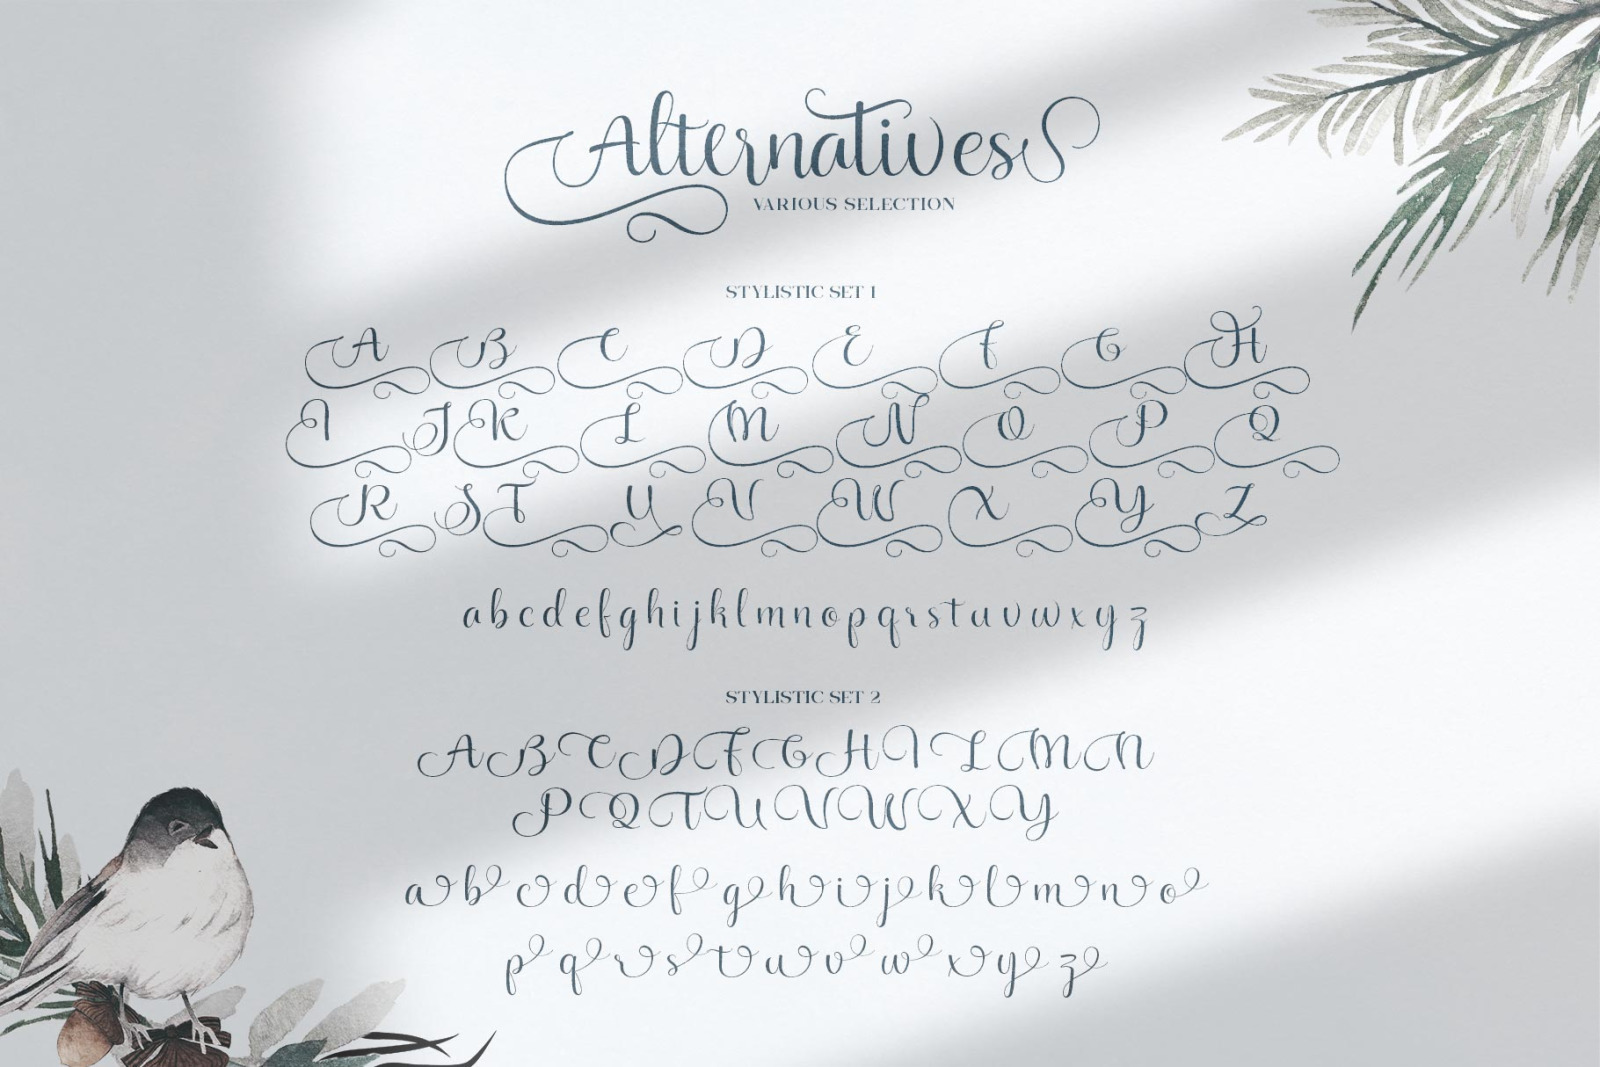 Alternatives
VARIOUS SELECTION
STYLISTIC SET 1
A B C D E F G H
I J K L M N O P Q
R S T U V W X Y Z
a b c d e f g h i j k l m n o p q r s t u v w x y z
STYLISTIC SET 2
A B C D F G H I L M N
P Q T U V W X Y
a b c d e f g h i j k l m n o
p q r s t u v w x y z